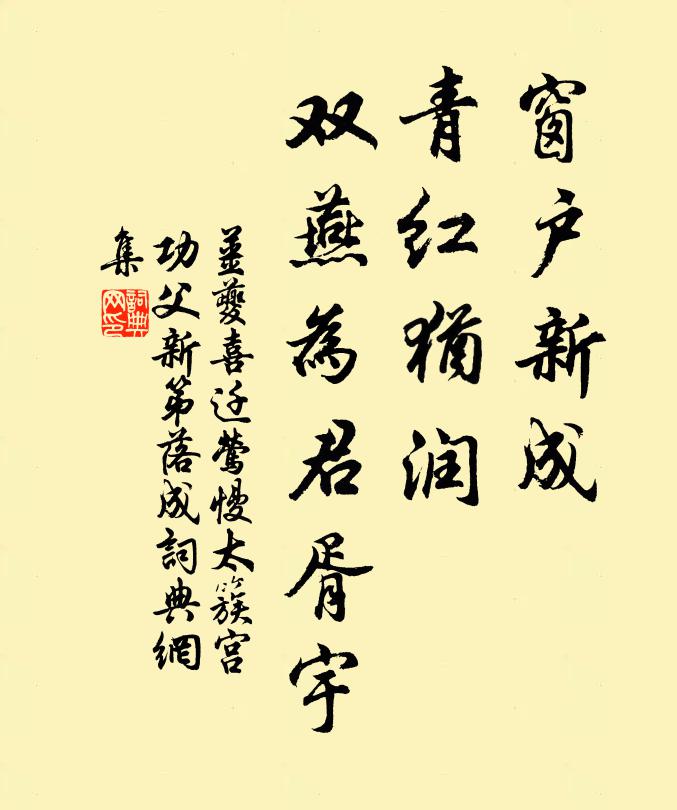 窗户新成
青红犹润
双燕為君胥宇
姜夔喜迁莺慢太簇宫
功父新第落成詞典網
集
詞典
网印